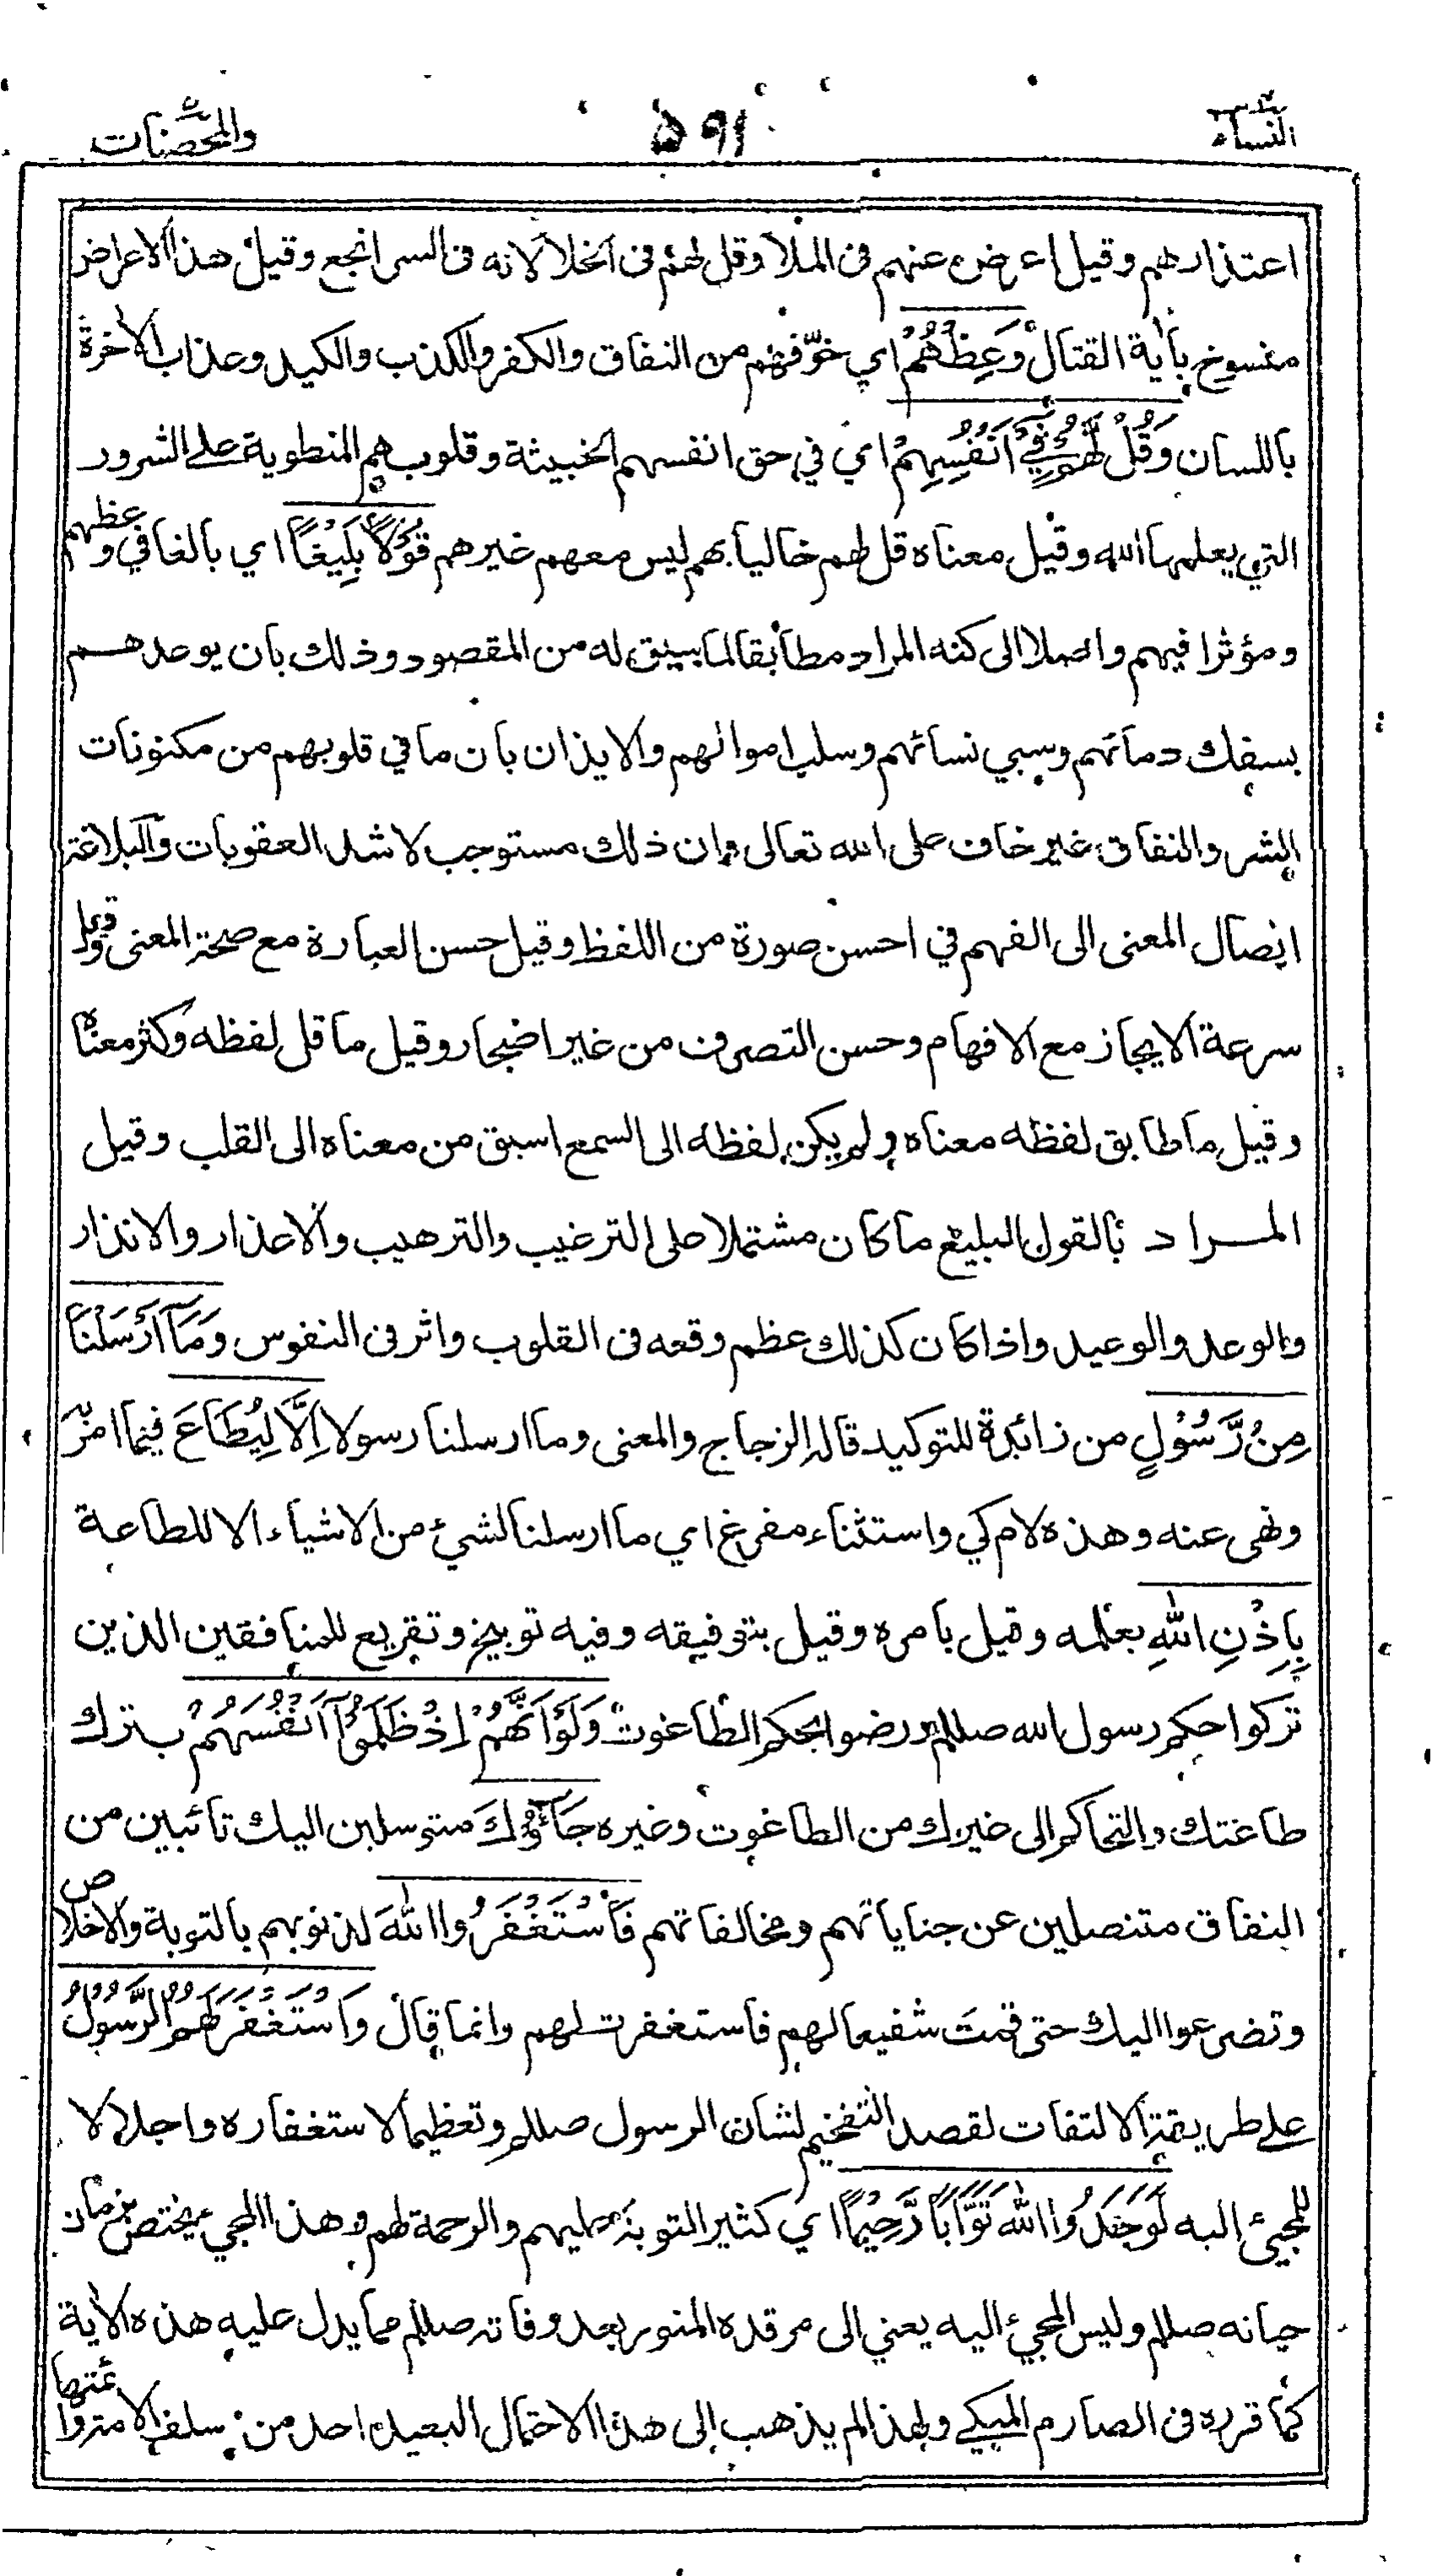 النساء
۵۹۱
والمحصنات
اعتذارهم وقيل اعرض عنهم فى الملأ وقل لهم فى الخلأ لانه فى السر انجع وقيل هذا الاعراض
منسوخ بأية القتال وَعِظْهُمْ اي خوّفهم من النفاق والكفر والكذب والكيد وعذاب الاخرة
باللسان وَقُلْ لَّهُمْ فِيْ اَنْفُسِهِمْ اي في حق انفسهم الخبيثة وقلوبهم المنطوية على الشرور
التي يعلمها الله وقيل معناه قل لهم خاليا بهم ليس معهم غيرهم قَوْلاً بَلِيْغًا اي بالغا في وعظهم
ومؤثرا فيهم واصلا الى كنه المراد مطابقا لما سيق له من المقصود وذلك بان يوعدهم
بسفك دمائهم وسبي نسائهم وسلب اموالهم والايذان بان ما في قلوبهم من مكنونات
الشر والنفاق غير خاف على الله تعالى وان ذلك مستوجب لاشد العقوبات والبلاغة
ايصال المعنى الى الفهم في احسن صورة من اللفظ وقيل حسن العبارة مع صحة المعنى وقيل
سرعة الايجاز مع الافهام وحسن التصرف من غير اضجار وقيل ما قل لفظه وكثر معناه
وقيل ما طابق لفظه معناه ولم يكن لفظه الى السمع اسبق من معناه الى القلب وقيل
المراد بالقول البليغ ما كان مشتملا على الترغيب والترهيب والاعذار والانذار
والوعد والوعيد واذا كان كذلك عظم وقعه فى القلوب واثر فى النفوس وَمَآ اَرْسَلْنَا
مِنْ رَّسُوْلٍ من زائدة للتوكيد قاله الزجاج والمعنى وما ارسلنا رسولا اِلَّا لِيُطَاعَ فيما امر به
ونهى عنه وهذه لام كي واستثناء مفرغ اي ما ارسلنا لشيء من الاشياء الا للطاعة
بِاِذْنِ اللهِ بعلمه وقيل بامره وقيل بتوفيقه وفيه توبيخ وتقريع للمنافقين الذين
تركوا حكم رسول الله صللم ورضوا بحكم الطاغوت وَلَوْ اَنَّهُمْ اِذْ ظَلَمُوْٓا اَنْفُسَهُمْ بترك
طاعتك والتحاكم الى غيرك من الطاغوت وغيره جَآءُوْكَ متوسلين اليك تائبين من
النفاق متنصلين عن جناياتهم ومخالفاتهم فَاسْتَغْفَرُوا اللهَ لذنوبهم بالتوبة والاخلاص
وتضرعوا اليك حتى قمت شفيعا لهم فاستغفرت لهم وانما قال وَاسْتَغْفَرَ لَهُمُ الرَّسُوْلُ
على طريقة الالتفات لقصد التفخيم لشان الرسول صللم وتعظيما لاستغفاره واجلالا
للمجيئ اليه لَوَجَدُوا اللهَ تَوَّابًا رَّحِيْمًا اي كثير التوبة عليهم والرحمة لهم وهذا المجيئ يختص بزمان
حياته صللم وليس المجيئ اليه يعني الى مرقده المنور بعد وفاته صللم مما يدل عليه هذه الاية
كما قرره فى الصارم المبكي ولهذا لم يذهب الى هذا الاحتمال البعيد احد من سلف الامة وائمتها